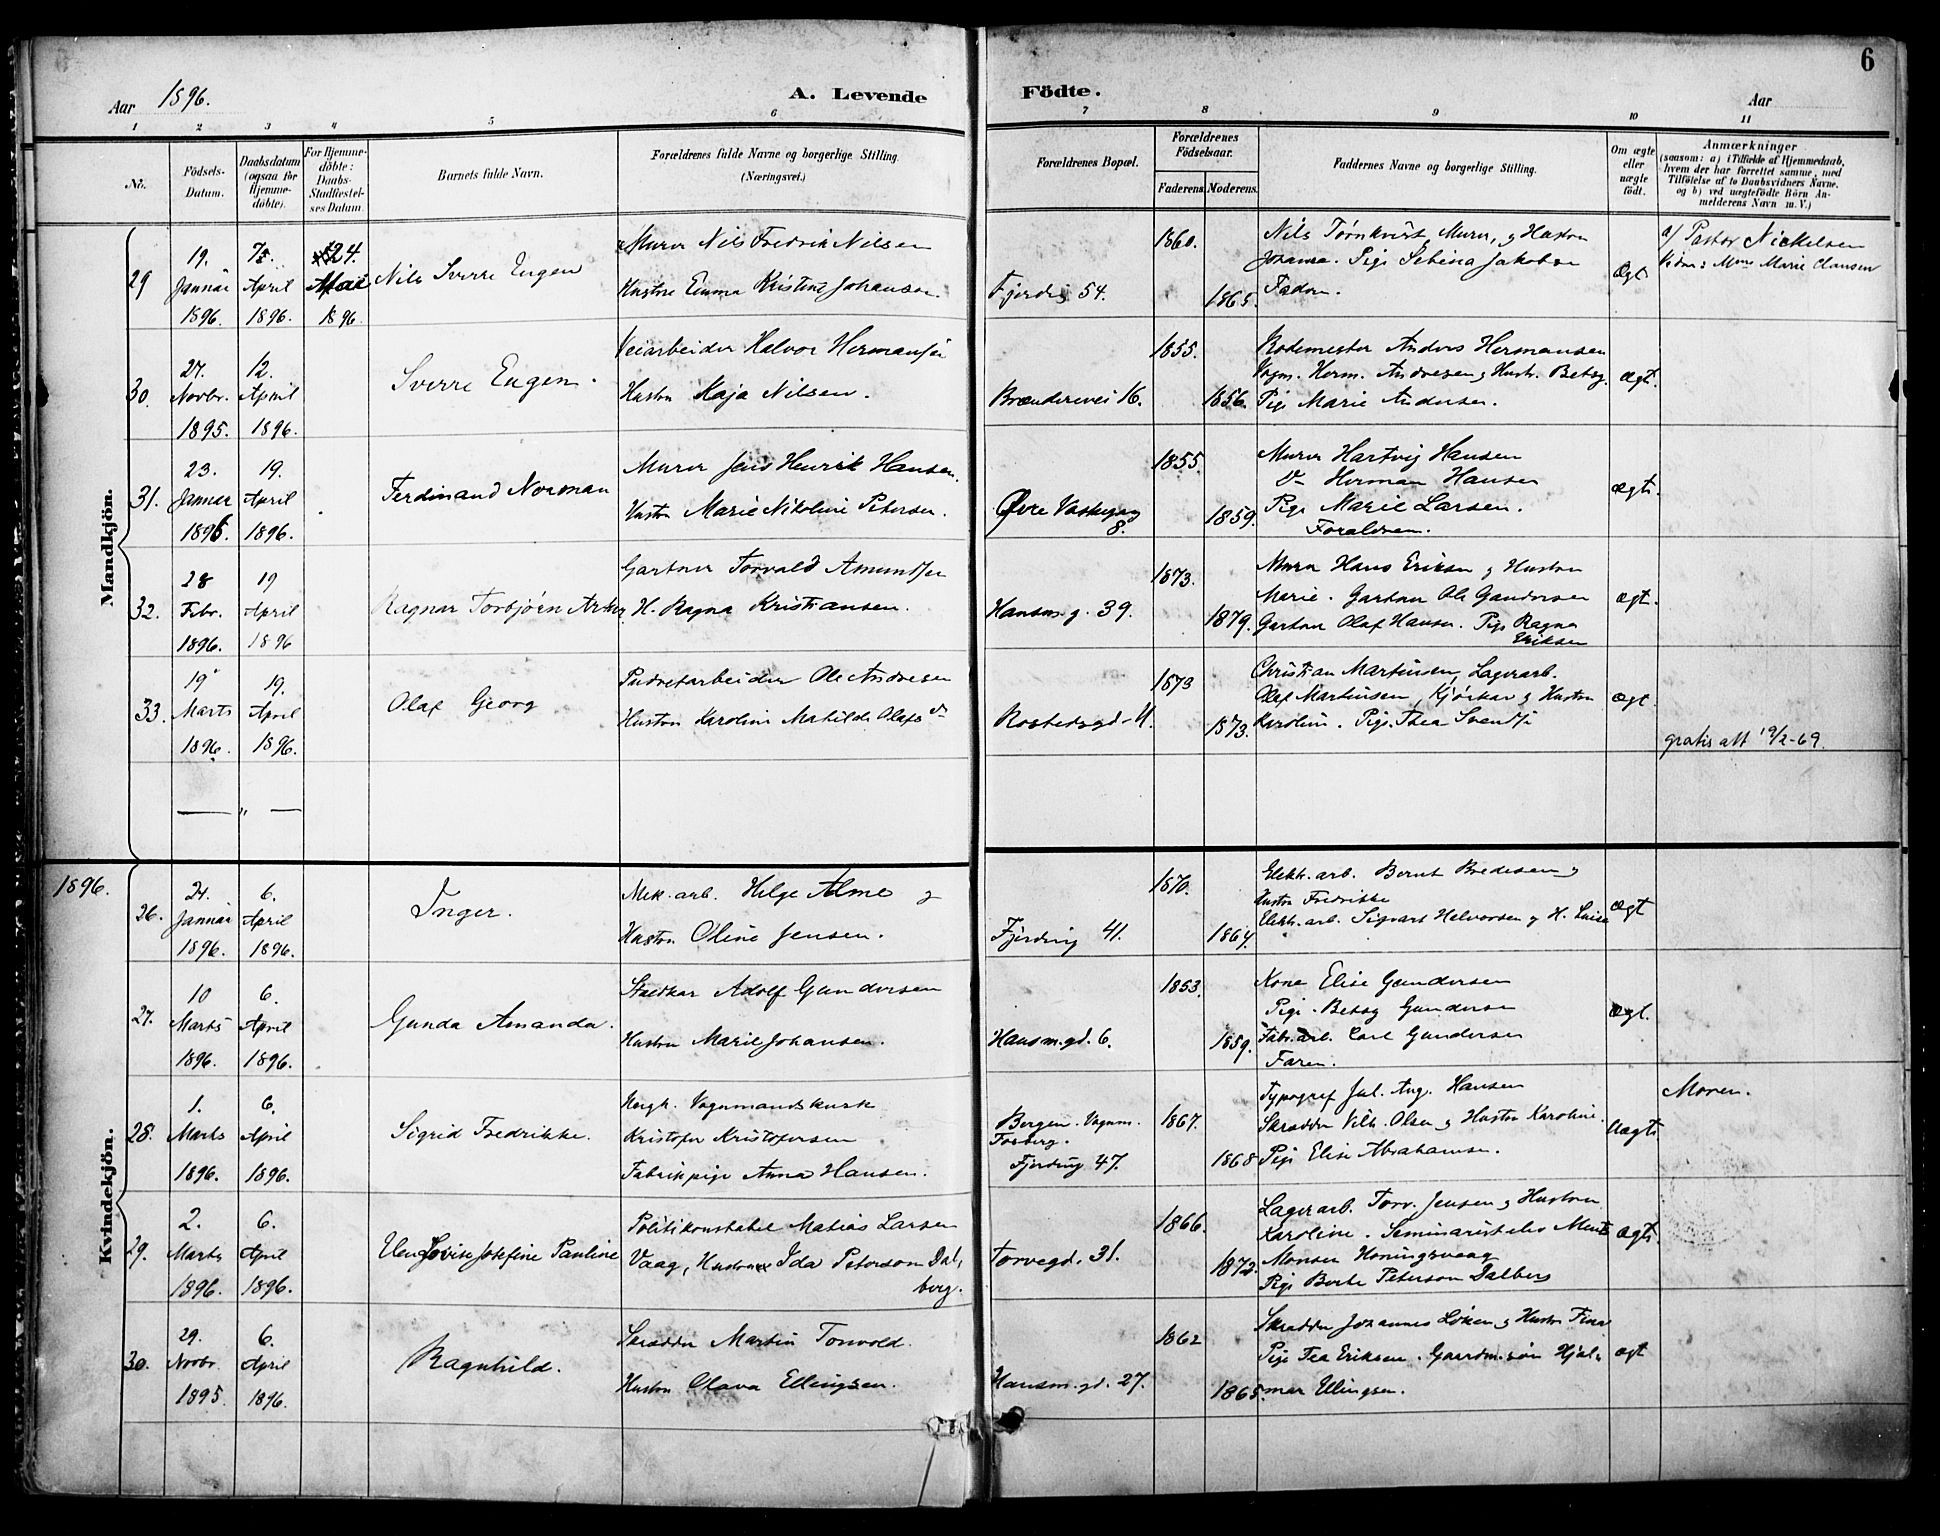 6
Aar 1896.
A. Levende Födte.
Aar
1 2 3 4 5 6 7 8 9 10 11
No.
Födsels-Datum.
Daabsdatum (ogsaa for Hjemme-döbte).
For Hjemme-döbte: Daabs-Stadfæstel-ses Datum.
Barnets fulde Navn.
Forældrenes fulde Navne og borgerlige Stilling.
(Næringsvei.)
Forældrenes Bopæl.
Forældrenes Födselsaar.
Faderens. Moderens.
Faddernes Navne og borgerlige Stilling.
Om ægte eller uægte födt.
Anmærkninger
(saasom: a) i Tilfælde af Hjemmedaab,
hvem der har forrettet samme, med
Tilföielse af to Daabsvidners Navne.
og b) ved uægtefödte Börn An-
melderens Navn m. V.)
Mandkjön.
29
19. Januar 1896.
April 1896.
24. Mai 1896.
Nils Sverre Eugen
Murer Nils Fredrik Nilsen
Hustru Emma Kristine Johansen.
Fjerding 54.
1860.
1865.
Nils Törnkvist, Murer, og Hustru
Johanna. Pige Sebina Jakobsen
Faderen.
Ægt
a/ Pastor Nickelsen
Vidne: Mme Marie Clausen
30.
27. Novbr. 1895.
12. April 1896.
Sverre Eugen.
Veiarbeider Halvor Hermansen
Hustru Maja Nilsen.
Brænderivei 16.
1855.
1856.
Rodemester Anders Hermansen
Vogm. Herm. Andresen og Hustr. Betsy.
Pige Marie Andersen.
ægt.
31.
23. Januar 1896.
19. April 1896.
Ferdinand Norman
Murer Jens Henrik Hansen.
Hustru Marie Nikoline Petersen.
Øvre Vaskegang 8.
1855.
1859.
Murer Hartvig Hansen
Do Herman Hansen
Pige Marie Larsen.
Forældrene.
ægt.
32.
28 Febr. 1896.
19 April 1896
Ragnar Torbjörn Arthur
Gartner Torvald Amundsen
H. Ragna Kristiansen.
Hansm.g. 39.
1873.
1879.
Murer Hans Eriksen og Hustru
Marie. Gartner Ole Gundersen
Gartner Olaf Hansen. Pige Ragna
Eriksen
ægt.
33.
19 Marts 1896.
19. April 1896.
Olaf Georg
Pudretarbeider Ole Andresen
Hustru Karoline Matilde Olafsdr
Rostedsgd. 11.
1873
1873.
Christian Martinsen, Lagerarb.
Olaf Martinsen, Kjörekar og Hustru
Karoline. Pige Thea Svendsen
ægt.
gratis att 19/2-69.
— „ —
1896.
Kvindekjön.
26.
24. Januar 1896.
6. April 1896.
Inger.
Mek. arb. Helge Alme og
Hustru Oline Jensen.
Fjerding 41.
1870.
1864.
Elektr. arb. Bernt Bredesen og
Hustru Fredrikke
Elektr. arb. Sigvart Halvorsen og H. Luisa
ægt
27.
10 Marts 1896.
6. April 1896.
Gunda Amanda.
Staldkar Adolf Gundersen
Hustru Marie Johansen.
Hansm.gd. 6.
1853.
1859.
Kone Elise Gundersen
Pige Betsy Gundersen
Fabr.arb. Carl Gundersen
Faren.
ægt.
28.
1. Marts 1896.
6. April 1896.
Sigrid Fredrikke.
Ungk. Vognmandskusk
Kristofer Kristofersen
Fabrikpige Anna Hansen.
Bergen. Vognm.
Torberg.
Fjerding 47.
1867.
1868
Typograf Jul. Aug. Hansen
Skrædder Vilh. Olsen og Hustru Karoline.
Pige Elise Abrahamsen.
Uægte
Moren.
29.
2. Marts 1896.
6. April 1896.
Lovise Josefine Pauline
Politikonstabel Matias Larsen
Vaag, Hustru Ida Peterson Dal-
berg.
Torvegd. 31.
1866.
1872.
Lagerarb. Torv. Jensen og Hustru
Karoline. Seminaristelev Mentz
Monsen Honingsvaag
Pige Berte Peterson Dalberg
ægt.
30.
29. Novbr. 1895.
6. April 1896.
Ragnhild.
Skrædder Martin Tonvold.
Hustru Olava Ellingsen.
Hansm.gd. 27.
1862
1865.
Skrædder Johannes Löken og Hustru Fina
Pige Tea Eriksen. Gaardm.sön Hjal-
mar Ellingsen.
ægt